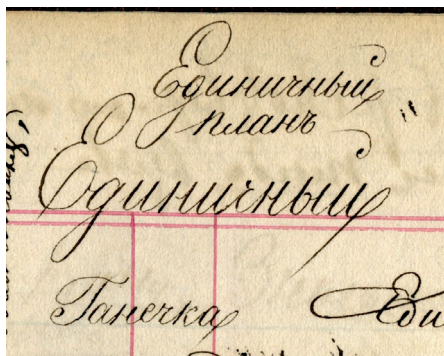 Единичный
планъ
Единичный
Танечка Еди